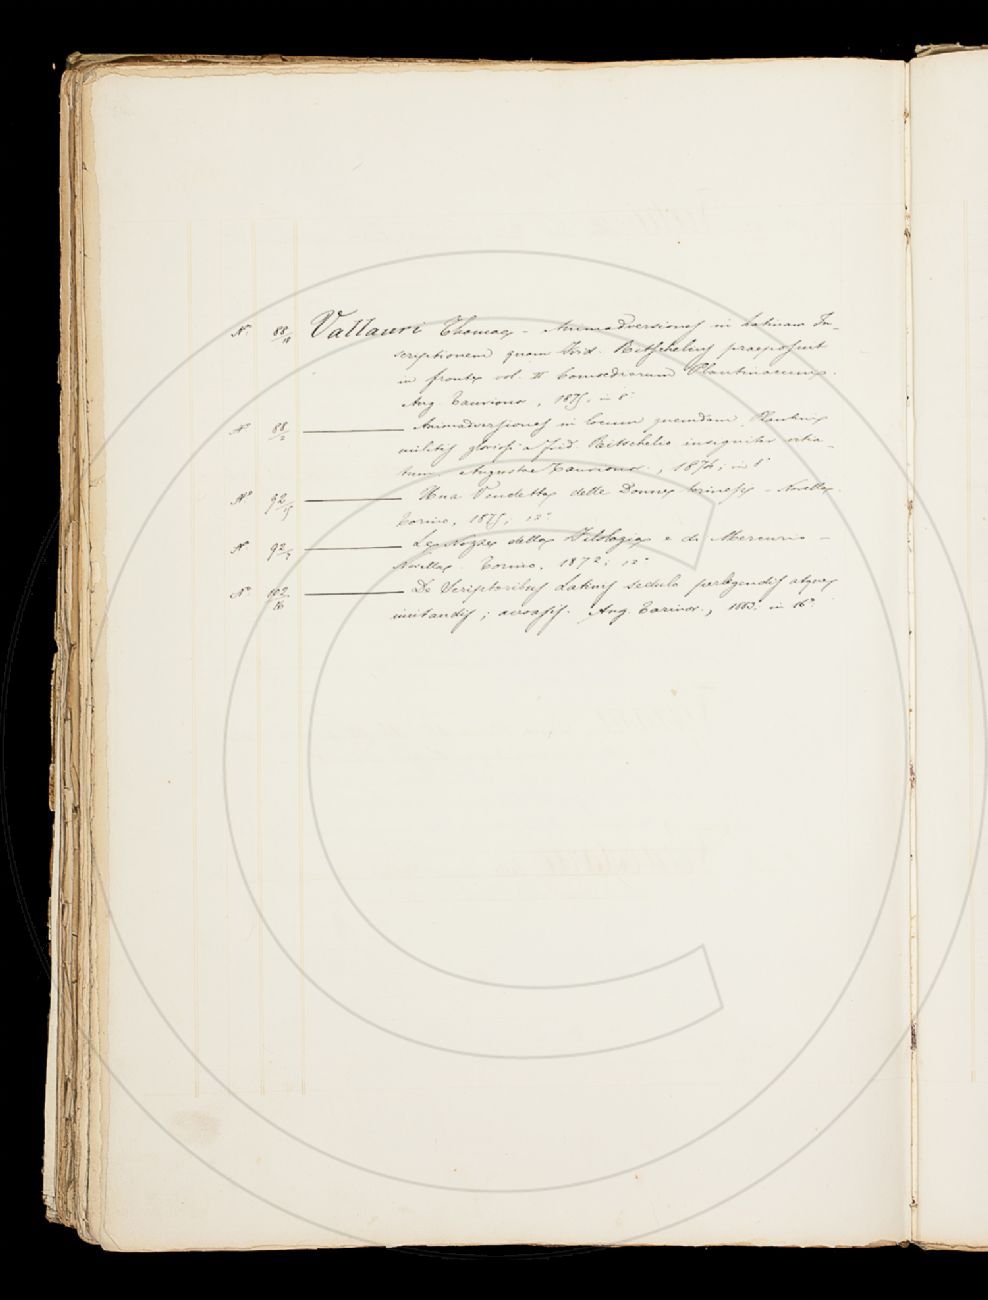 N.° 88/18 Vallauri Thomae - Animadversiones in Latinam In-
scriptionem quam Frid. Ritschelius praeposuit
in fronte vol. II Comoediarum Plautinarum.
Aug. Taurinor, 1875; in 8°
N° 88/2 ——— Animadversiones in locum quemdam Plautini
militis gloriosi a Frid Ritschelio insigniter
tum. Augustae Taurinor., 1874; in 8°
N° 92/15 ——— Una Vendetta delle Donne torinesi - Novella.
Torino, 1875; 12°
N° 92/5 ——— Le Nozze della Filologia e di Mercurio -
Novella. Torino, 1872; 12°
N° 162/16 ——— De Scriptoribus Latinis sedulo perlegendis atque
imitandis; acroasis. Aug. Tarinor., 1883; in 16°